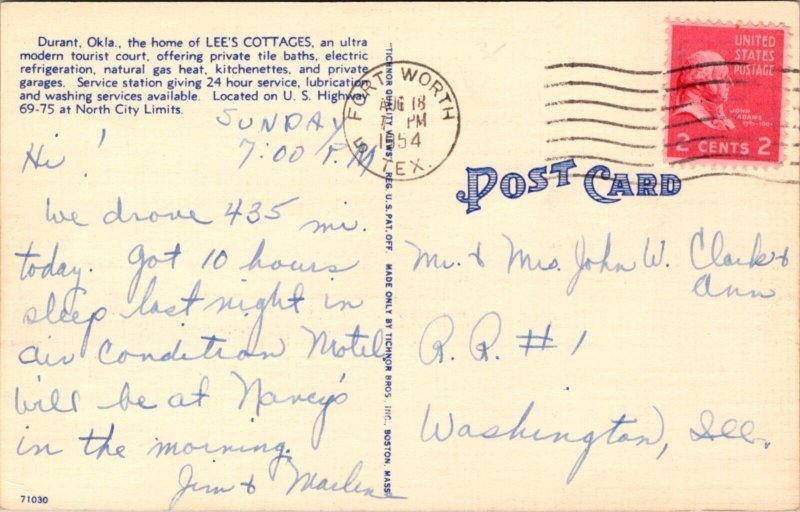 Durant, Okla., the home of LEE'S COTTAGES, an ultra
modern tourist court, offering private tile baths, electric
refrigeration, natural gas heat, kitchenettes, and private
garages. Service station giving 24 hour service, lubrication
and washing services available. Located on U. S. Highway
69-75 at North City Limits.
SUNDAY
7:00 P.M
Hi!
We drove 435 mi.
today. Got 10 hours
sleep last night in
air condition Motel
will be at Nancy's
in the morning.
Jim & Marlene
71030
"TICHNOR QUALITY VIEWS," REG. U. S. PAT. OFF. MADE ONLY BY TICHNOR BROS., INC., BOSTON, MASS.
FORT WORTH
AUG 18
PM
1954
TEX.
UNITED
STATES
POSTAGE
JOHN
ADAMS
2 CENTS 2
POST CARD
Mr. & Mrs. John W. Clark &
Ann
R. R. #1
Washington, Ill.